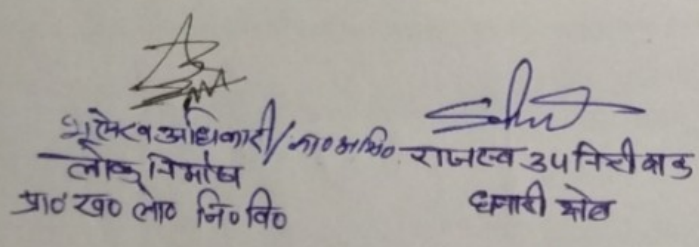 भूलेख अधिकारी/का०अभि०
लोक निर्माण
प्रा० ख० लो० नि० वि०
राजस्व उपनिरीक्षक
धनारी क्षेत्र